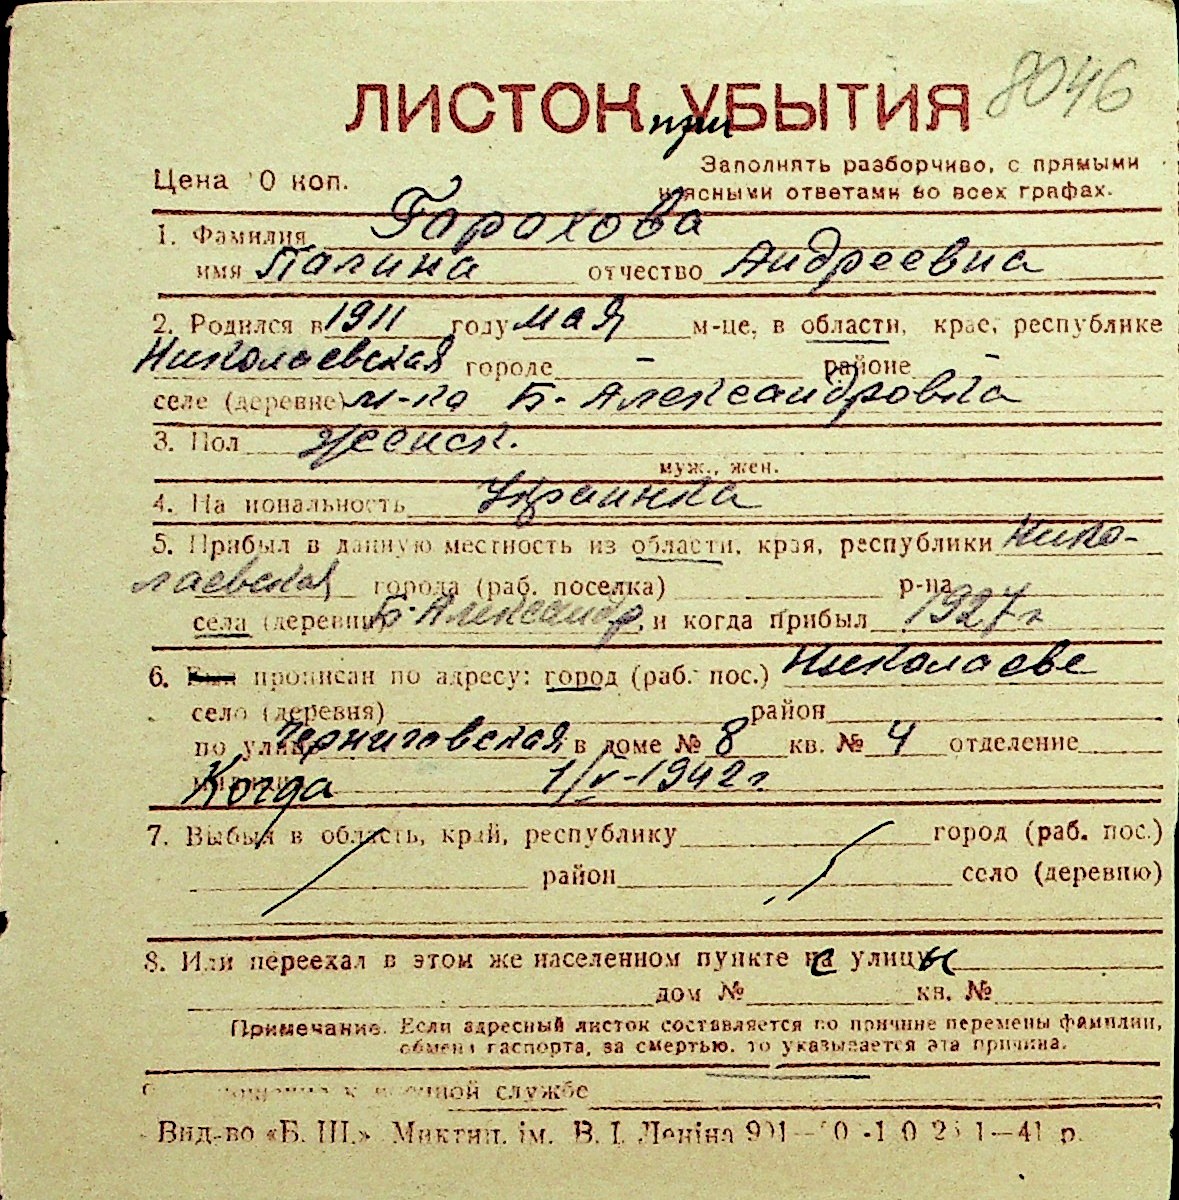 8046
ЛИСТОК при УБЫТИЯ
Заполнять разборчиво, с прямыми
и ясными ответами во всех графах.
Цена 0 коп.
1. Фамилия Горохова
имя Палина отчество Андреевна
2. Родился в 1911 году мая м-це, в области, крае, республике
Николаевская городе — районе —
селе (деревне) м-ко Б-Александровка
3. Пол женск.
муж., жен.
4. На иональность Украинка
5. Прибыл в данную местность из области, края, республики Нико-
лаевская города (раб. поселка) р-на
села (деревни) Б-Александр. и когда прибыл 1927 г
6. прописан по адресу: город (раб. пос.) Николаеве
село (деревня) район
по улице Черниговская в доме № 8 кв. № 4 отделение
Когда 1/V-1942 г.
7. Выбыл в область, край, республику город (раб. пос.)
район село (деревню)
8. Или переехал в этом же населенном пункте с улицы
дом № кв. №
Примечание. Если адресный листок составляется по причине перемены фамилии,
обмена паспорта, за смертью, то указывается эта причина.
к военной службе
Вид-во «Б. Ш.» Миктип. ім. В. І. Леніна